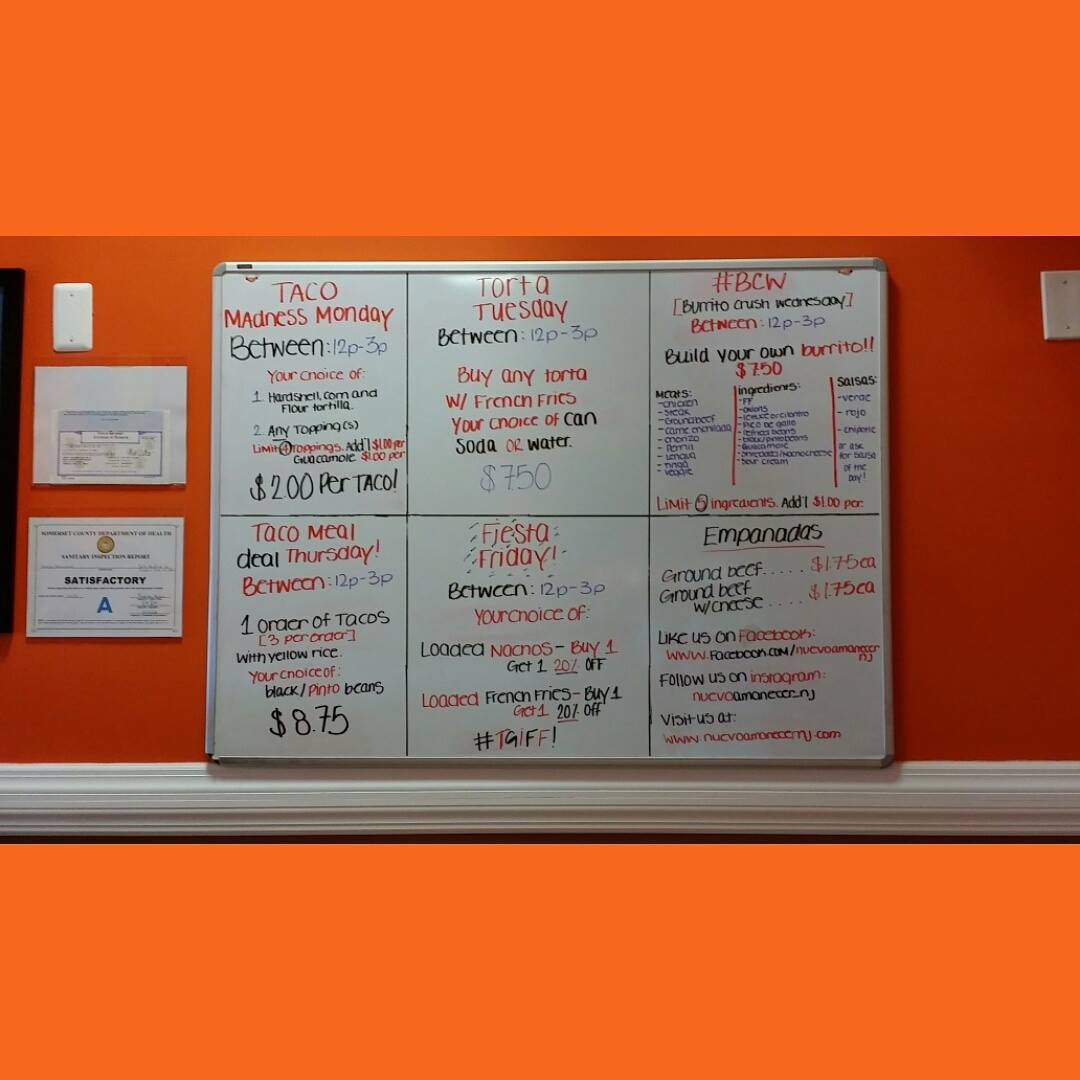 TACO
MAdness Monday
Between: 12p-3p
Your choice of:
1. Hardshell, corn and
Flour tortilla.
2. Any Topping(s)
Limit 4 Toppings. Add'l $1.00 per
Guacamole $1.00 per
$2.00 Per TACO!
Torta
Tuesday
Between: 12p-3p
Buy any torta
W/ French Fries
Your choice of can
Soda OR water.
$7.50
#BCW
[Burrito crush wednesday]
Between: 12p-3p
Build your own burrito!!
$7.50
Meats:
-chicken
-steak
-Ground beef
-carne enchilada
-chorizo
-Pernil
-Lengua
-Tinga
-veggie
ingredients:
-FF
-onions
-lettuce or cilantro
-Pico de gallo
-refried beans
-black/pinto beans
-Guacamole
-Shredded/Nacho cheese
-Sour cream
Salsas:
-verde
-rojo
-chipotle
or ask
for salsa
of the
day!
Limit 5 ingredients. Add'l $1.00 per.
Taco Meal
deal Thursday!
Between: 12p-3p
1 order of Tacos
[3 per order]
With yellow rice.
Your choice of:
black/Pinto beans
$8.75
Fiesta
Friday!
Between: 12p-3p
Your choice of:
Loaded Nachos - Buy 1
Get 1 20% OFF
Loaded French Fries - Buy 1
Get 1 20% Off
#TGIFF!
Empanadas
Ground beef..... $1.75 ea
Ground beef
w/cheese .... $1.75 ea
Like us on Facebook:
www.Facebook.com/nuevoamanecer
nj
Follow us on instagram:
nuevoamanecer_nj
Visit us at:
www.nuevoamanecernj.com
SOMERSET COUNTY DEPARTMENT OF HEALTH
SANITARY INSPECTION REPORT
SATISFACTORY
A